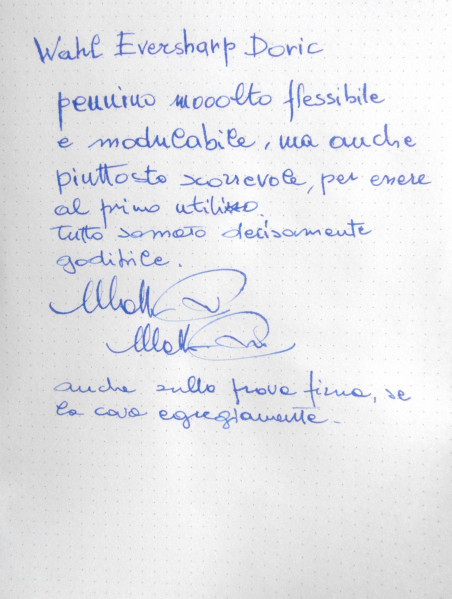 Wahl Eversharp Doric
pennino mooolto flessibile
e modulabile, ma anche
piuttosto scorrevole, per essere
al primo utilizzo.
tutto sommato decisamente
godibile.
anche sulla prova firma, se
la cava egregiamente.